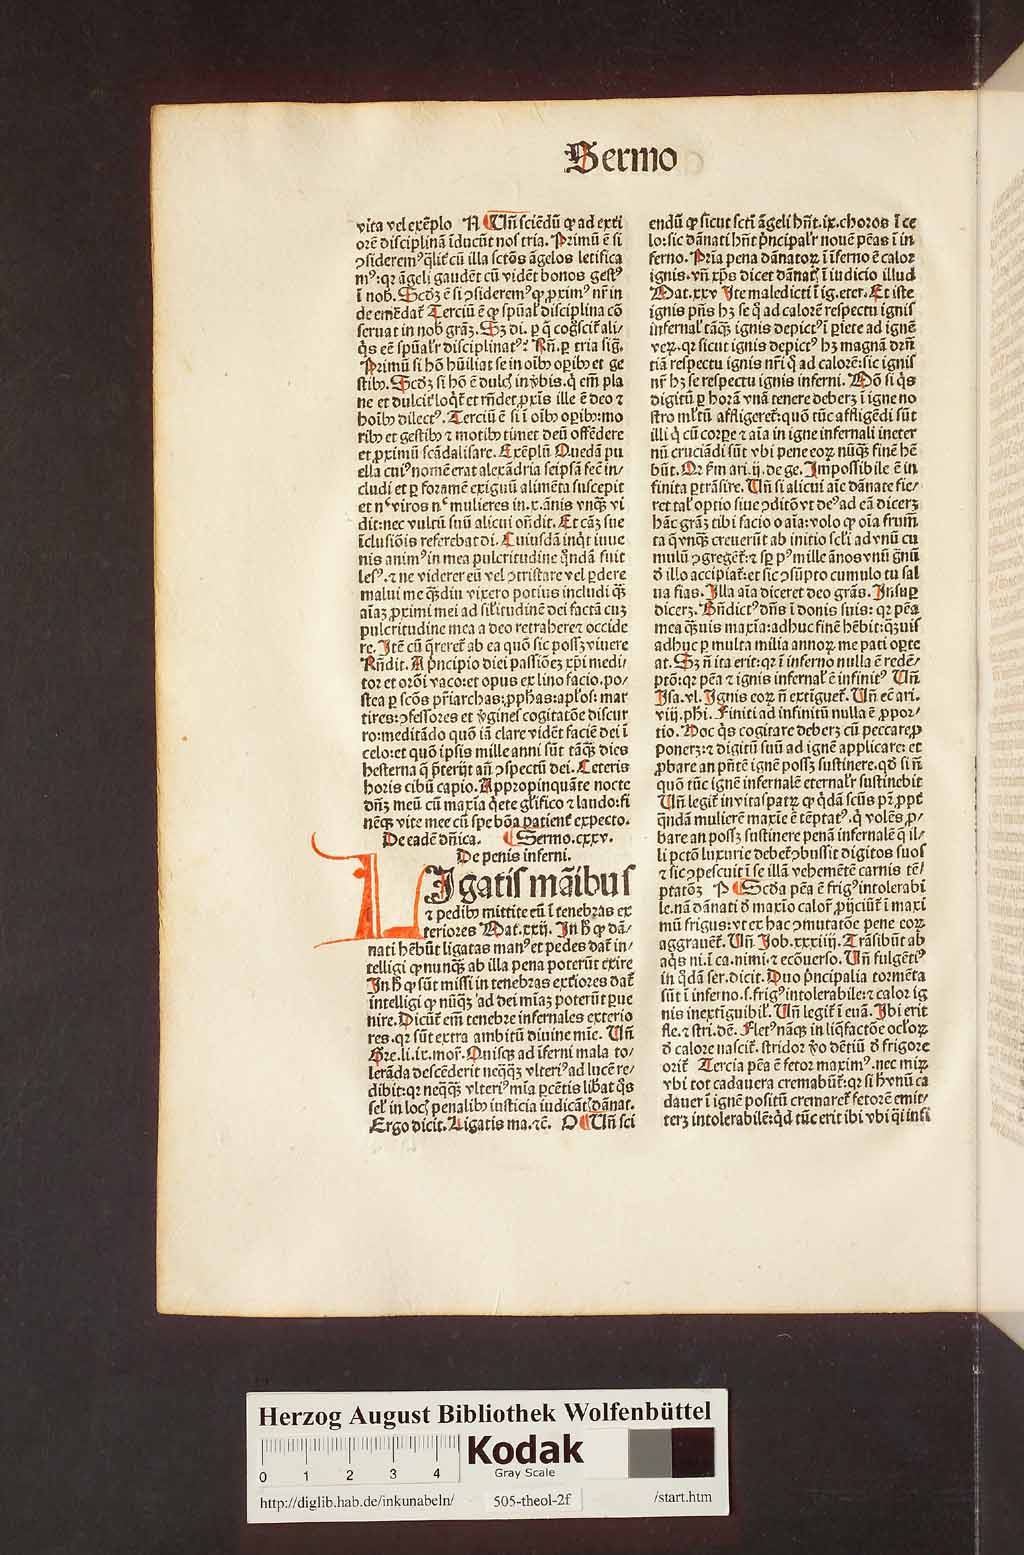 Sermo
vita vel exẽplo N Uñ sciẽdũ ꝙ ad exti
orẽ disciplinã ĩducũt nos tria. Primũ ẽ si
ↄsideremꝰ q̃liṫ cũ illa sctõs ãgelos letifica
mꝰ: qꝛ ãgeli gaudẽt cũ vidẽt bonos gestꝰ
ĩ nob. Scd̃ẜ ẽ si ↄsideremꝰ ꝙ ꝓximꝰ nr̃ in
de emẽdat Terciũ ẽ ꝙ spũal disciplina cõ
seruat in nob grãʒ. Sʒ di. ꝑ q̃ cog̃scit ali/
q̃s eẽ spũalr disciplinatꝰ? Rñ. ꝑ tria sig̃.
Primũ si hõ hũiliat se in oĩbꝰ oꝑibꝰ et ge
stibꝰ. Scd̃ʒ si hõ ẽ dulcꝭ in ỹbis. q̃ em̃ pla
ne et dulcit loq̃t et rñdet ꝓxĩs ille ẽ deo ⁊
hoĩbꝰ dilectꝰ. Terciũ ẽ si ĩ oĩbꝰ oꝑibꝰ: mo
ribꝰ et gestibꝰ ⁊ motibꝰ timet deũ offẽdere
et ꝓximũ scãdalisare. Exẽplũ Quedã pu
ella cuiꝰ nomẽ erat alexãdria seipsã fec̃ in/
cludi et ꝑ foramẽ exiguũ alimẽta suscepit
et nᶜ viros nᶜ mulieres in .x. ãnis vnqʒ vi
dit: nec vultũ suũ alicui oñdit. Et cãʒ sue
ĩclusiõis referebat di. Cuiusdã inq̃t iuue
nis animꝰ in mea pulcritudine q̃ndã fuit
lesꝰ. ⁊ ne viderer eũ vel ↄtristare vel ꝑdere
malui me q̃ʒdiu vixero potius includi qʒ
aĩaʒ ꝓximi mei ad sil̃itudinẽ dei factã cuʒ
pulcritudine mea a deo retrahere ⁊ occide
re. Itẽ cũ q̃reret ab ea quõ sic possʒ viuere
Rñdit. A p̃ncipio diei passiõeʒ xp̃i medi/
tor et or̃oni vaco: et opus ex lino facio. po/
stea ꝑ scõs pr̃iarchas: ꝓphas: apl̃os: mar
tires: ↄfessores et ỹgines cogitatõe discur
ro: meditãdo quõ iã clare vidẽt faciẽ dei ĩ
celo: et quõ ipsis mille anni sũt tãqʒ dies
hesterna q̃ p̃terijt añ ↄspectũ dei. Ceteris
horis cibũ capio. Appropinquãte nocte
dñʒ meũ cũ maxĩa q̃ete gl̃ifico ⁊ laudo: fi
nẽqʒ vite mee cũ spe bõa patient expecto.
De eadẽ dñica. Sermo.cxxv.
De penis inferni.
LIgatis mãibus
⁊ pedibꝰ mittite eũ ĩ tenebras ex
teriores Mat.xxij. In h̃ ꝙ dã/
nati hẽbũt ligatas manꝰ et pedes dat in/
telligi ꝙ nunqʒ ab illa pena poterũt exire
In h̃ ꝙ sũt missi in tenebras extiores dat
intelligi ꝙ nũqʒ ad dei mĩaʒ poterũt ꝑue
nire. Dicũt em̃ tenebre infernales exterio
res. qꝛ sũt extra ambitũ diuine mie. Uñ
Gre.li.ix.moꝝ. Quisqʒ ad ĩferni mala to/
lerãda descẽderit neq̃qʒ vlteriꝰ ad lucẽ re/
dibit: qꝛ neq̃qʒ vlteriꝰ mĩa ꝑcẽtis libat q̃s
sel̃ in locꝭ penalibꝰ iusticia iudicãtꝭ dãnat.
Ergo dicit. Ligatis ma. ⁊c̃. O Uñ sci
endũ ꝙ sicut sctĩ ãgeli hñt .ix. choros ĩ ce
lo: sic dãnati hñt p̃ncipalr nouẽ pẽas ĩ in
ferno. Pria pena dãnatoꝝ ĩ ĩferno ẽ calor
ignis. vñ xp̃s dicet dãnatꝭ ĩ iudicio illud
Mat.xxv Ite maledicti ĩ ig. eter. Et iste
ignis pñs hʒ se q̃ ad calorẽ respectu ignis
infernal tãqʒ ignis depictꝰ ĩ ꝑiete ad ignẽ
veꝝ. qꝛ sicut ignis depictꝰ hʒ magnã drñ
tiã respectu ignis nr̃i q̃ ad calorẽ: sic ignis
nr̃ hʒ se respectu ignis inferni. Mõ si q̃s
digitũ ꝑ horã vnã tenere deberʒ ĩ igne no
stro ml̃tũ affligeret: quõ tũc affligẽdi sũt
illi q̃ cũ corꝑe ⁊ aĩa in igne infernali ineter
nũ cruciãdi sũt vbi pene eoꝝ nũqʒ finẽ hẽ
bũt. Qꝛ fm ari.ij. de ge. Impossibile ẽ in
finita ꝑtrãsire. Uñ si alicui aĩe dãnate fie/
ret tal optio siue ↄditõ vt deꝰ ad eã dicerʒ
hãc grãʒ tibi facio o aĩa: volo ꝙ oĩa frumẽ
ta q̃ vnqʒ creuerũt ab initio scl̃i ad vnũ cu
mulũ ↄgregẽt: ⁊ sꝑ pꝰ mille ãnos vnũ g̃nũ
d̃ illo accipiat: et sic ↄsũpto cumulo tu sal
ua fias. Illa aĩa diceret deo grãs. Insuꝑ
dicerʒ. Bñdictꝰ dñs ĩ donis suis: qꝛ pẽa
mea q̃ʒuis maxĩa: adhuc finẽ hẽbit: q̃ʒuis
adhuc ꝑ multa milia annoꝝ me pati oꝑte
at. Sʒ ñ ita erit: qꝛ ĩ inferno nulla ẽ redẽ/
ptõ: qꝛ pẽa ⁊ ignis infernal ẽ infinitꝰ Uñ
Isa.vl. Ignis eoꝝ ñ extiguet. Uñ ec̃ ari.
viij. phi. Finiti ad infinitũ nulla ẽ ꝓpor/
tio. Hoc q̃s cogitare deberʒ cũ peccare ꝓ
ponerʒ: ⁊ digitũ suũ ad ignẽ applicare: et
ꝓbare an pñtẽ ignẽ possʒ sustinere. qd̃ si ñ
quõ tũc ignẽ infernalẽ eternalr sustinebit
Uñ legit in vitaspatꝝ ꝙ q̃dã scũs pr̃ ꝓpt
q̃ndã mulierẽ maxĩe ẽ tẽptatꝰ. q̃ volẽs ꝓ/
bare an possʒ sustinere penã infernalẽ q̃ il/
li pctõ luxurie debet ↄbussit digitos suos
⁊ sic ↄpescuit ĩ se illã vehemẽtẽ carnis tẽ/
ptatõʒ P Scd̃a pẽa ẽ frigꝰ intolerabi
le. nã dãnati d̃ maxĩo calor ꝓijciũt ĩ maxi
mũ frigus: vt ex hac ↄmutatõe pene eoꝝ
aggrauẽt. Uñ Job.xxiiij. Trãsibũt ab
aq̃s ni. ĩ ca. nimi. ⁊ ecõuerso. Uñ fulgẽtiꝰ
in q̃dã ser. dicit. Duo p̃ncipalia tormẽta
sũt ĩ inferno. s. frigꝰ intolerabile: ⁊ calor ig
nis inextiguibil. Uñ legit ĩ euã. Ibi erit
fle. ⁊ stri. dẽ. Fletꝰ nãqʒ in liq̃factõe ocl̃oꝝ
d̃ calore nascit. stridor ṽo dẽtiũ d̃ frigore
orit Tercia pẽa ẽ fetor maximꝰ. nec mirʒ
vbi tot cadauera cremabũt: qꝛ si h̃ vnũ ca
dauer ĩ ignẽ positũ cremaret fetorẽ emit/
terʒ intolerabilẽ: qd̃ tũc erit ibi vbi q̃i infi
Herzog August Bibliothek Wolfenbüttel
0 1 2 3 4
Kodak
Gray Scale
http://diglib.hab.de/inkunabeln/ 505-theol-2f /start.htm